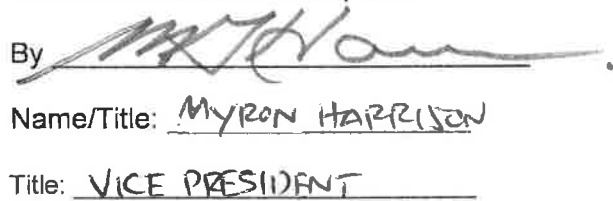 By
Name/Title: MYRON HARRISON
Title: VICE PRESIDENT